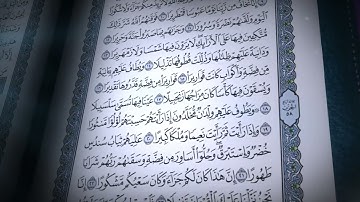 إِنَّا نَخَافُ مِن رَّبِّنَا يَوْمًا عَبُوسًا قَمْطَرِيرًا ۝١٠ فَوَقَىٰهُمُ ٱللَّهُ شَرَّ ذَٰلِكَ
ٱلْيَوْمِ وَلَقَّىٰهُمْ نَضْرَةً وَسُرُورًا ۝١١ وَجَزَىٰهُم بِمَا صَبَرُوا۟ جَنَّةً وَحَرِيرًا ۝١٢
مُّتَّكِـِٔينَ فِيهَا عَلَى ٱلْأَرَآئِكِ لَا يَرَوْنَ فِيهَا شَمْسًا وَلَا زَمْهَرِيرًا ۝١٣
وَدَانِيَةً عَلَيْهِمْ ظِلَٰلُهَا وَذُلِّلَتْ قُطُوفُهَا تَذْلِيلًا ۝١٤ وَيُطَافُ عَلَيْهِم بِـَٔانِيَةٍ
مِّن فِضَّةٍ وَأَكْوَابٍ كَانَتْ قَوَارِيرَا۠ ۝١٥ قَوَارِيرَا۟ مِن فِضَّةٍ قَدَّرُوهَا تَقْدِيرًا ۝١٦
وَيُسْقَوْنَ فِيهَا كَأْسًا كَانَ مِزَاجُهَا زَنجَبِيلًا ۝١٧ عَيْنًا فِيهَا تُسَمَّىٰ سَلْسَبِيلًا
۝١٨ وَيَطُوفُ عَلَيْهِمْ وِلْدَٰنٌ مُّخَلَّدُونَ إِذَا رَأَيْتَهُمْ حَسِبْتَهُمْ لُؤْلُؤًا مَّنثُورًا
۝١٩ وَإِذَا رَأَيْتَ ثَمَّ رَأَيْتَ نَعِيمًا وَمُلْكًا كَبِيرًا ۝٢٠ عَٰلِيَهُمْ ثِيَابُ سُندُسٍ
خُضْرٌ وَإِسْتَبْرَقٌ وَحُلُّوٓا۟ أَسَاوِرَ مِن فِضَّةٍ وَسَقَىٰهُمْ رَبُّهُمْ شَرَابًا
طَهُورًا ۝٢١ إِنَّ هَٰذَا كَانَ لَكُمْ جَزَآءً وَكَانَ سَعْيُكُم مَّشْكُورًا ۝٢٢